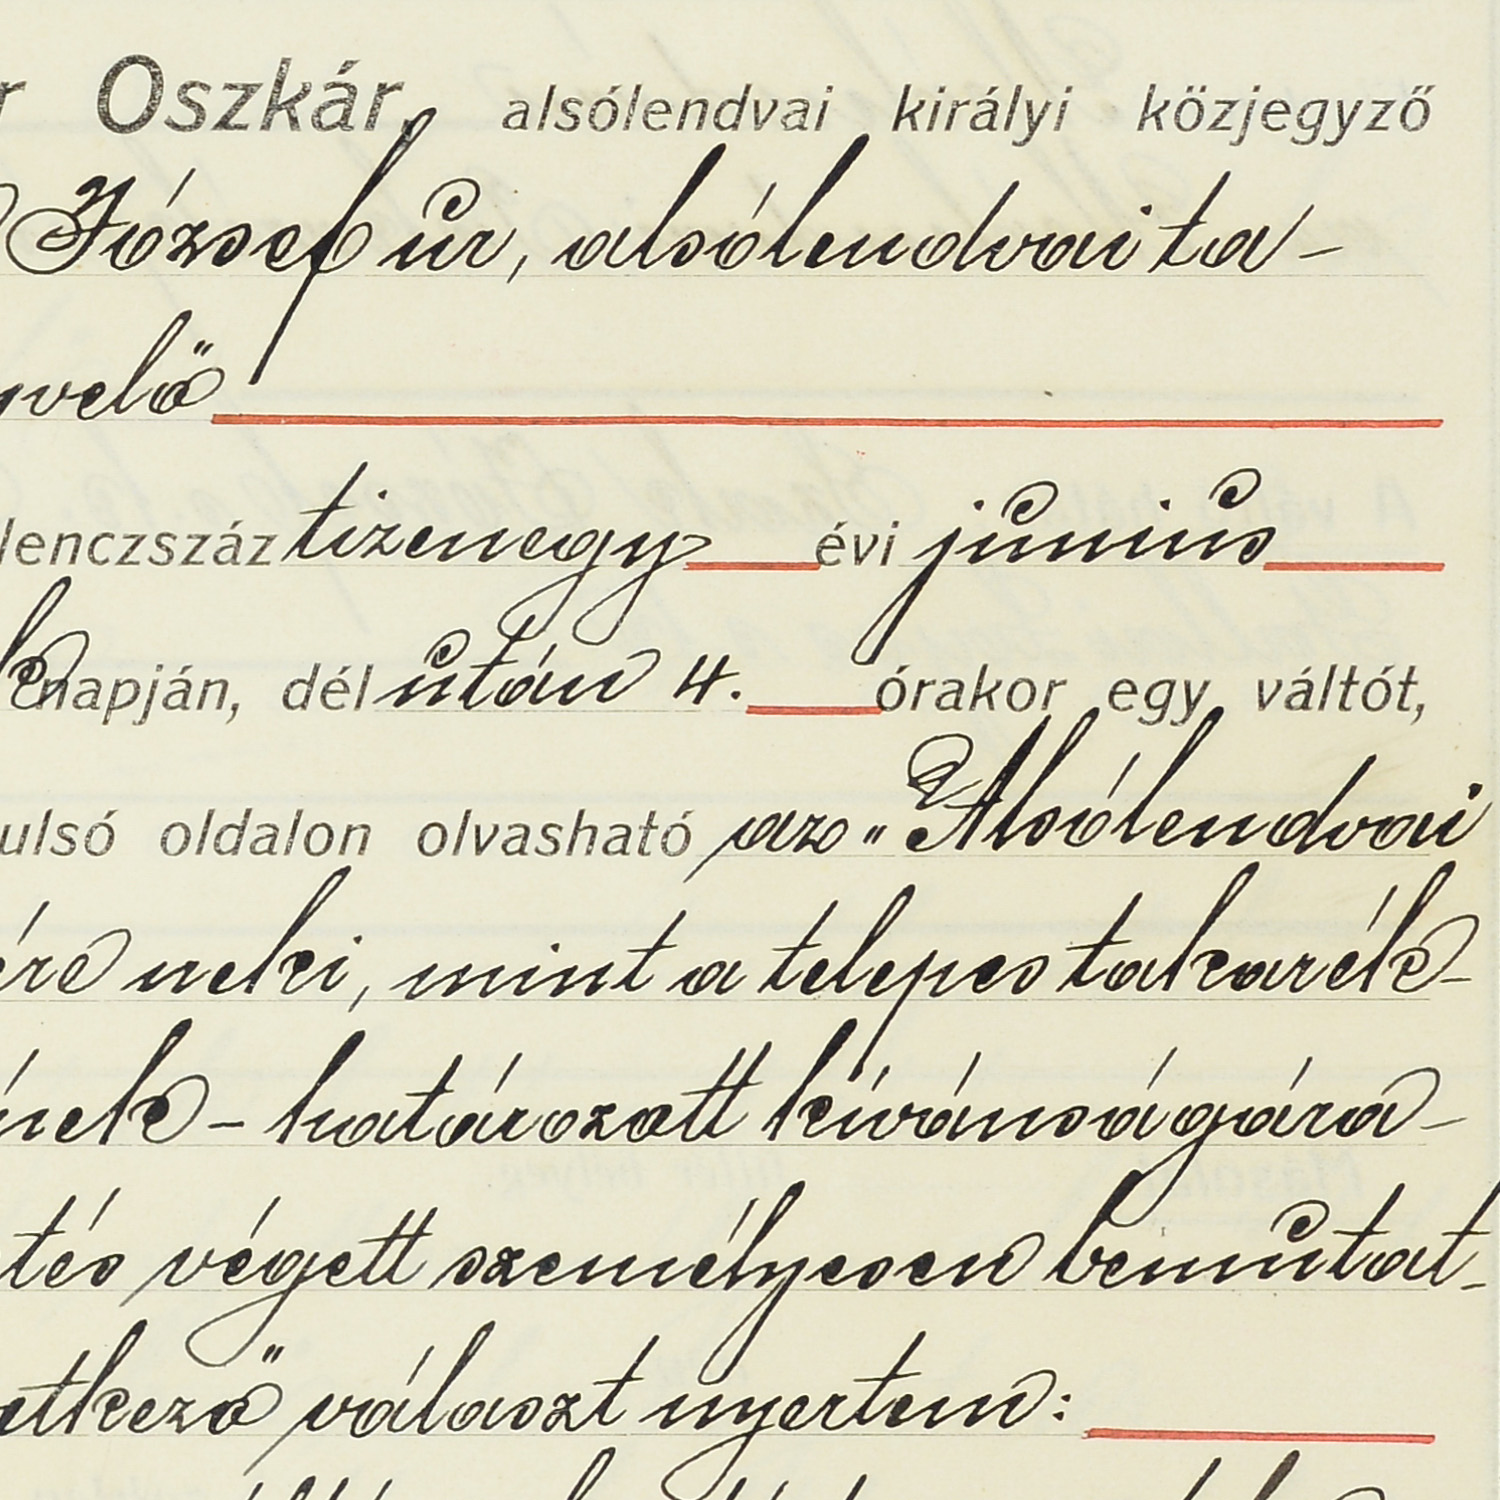 Oszkár, alsólendvai királyi közjegyző
József úr, alsólendvai ta-
velő
lenczszáz tizenegy évi június
napján, dél után 4. órakor egy váltót,
ulsó oldalon olvasható az „Alsólendvai
ére neki, mint a telepes takarék-
nek - határozott kívánságára -
tés végett személyesen bemutat-
etkező választ nyertem: